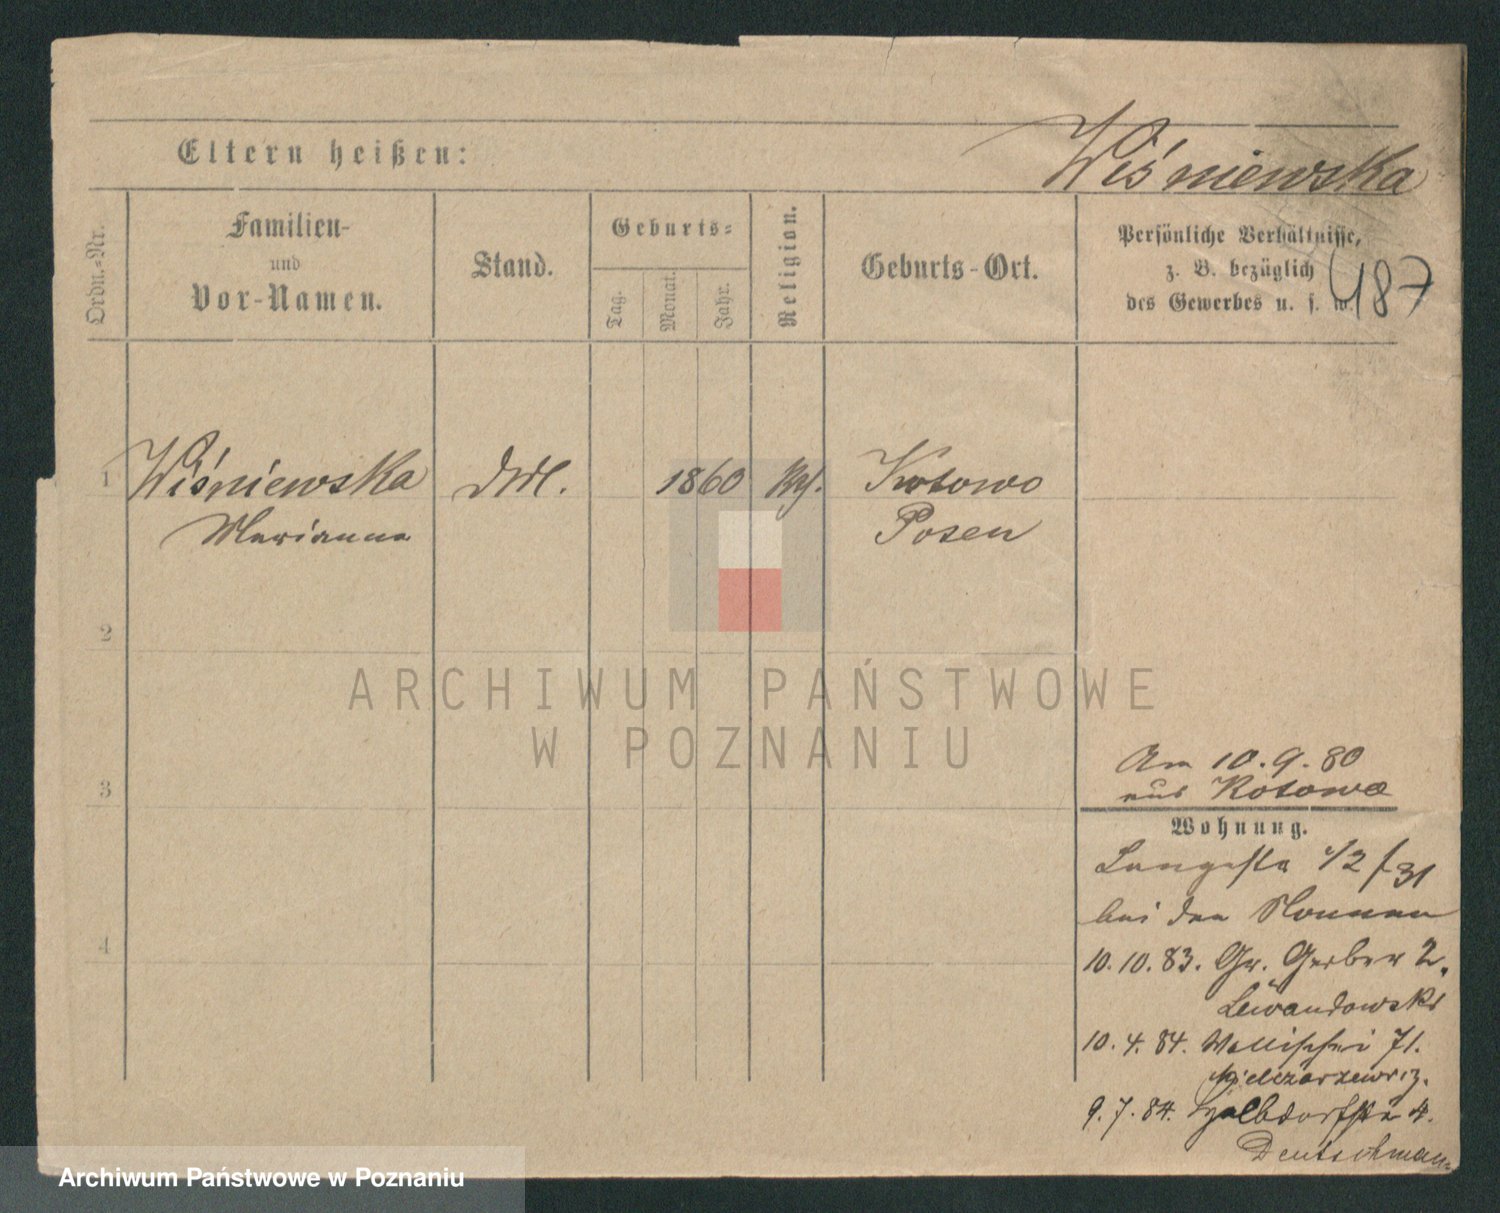 Wiśniewska
Eltern heißen:
Ordn.-Nr.
Familien-
und
Vor-Namen.
Stand.
Geburts-
Tag.
Monat.
Jahr.
Religion.
Geburts-Ort.
Persönliche Verhältnisse,
z. B. bezüglich
des Gewerbes u. s. w.
487
1 Wiśniewska 1860 Kotowo
Marianna Posen
2
3
4
Am 10.9.80
aus Kotowo
Wohnung.
Langestr 1/2 31
bei den Nonnen
10.10.83. Gr. Gerber 2.
Lewandowski
10.4.84. Wallischei 71.
9.7.84. 4.
Deutschmann
ARCHIWUM PAŃSTWOWE
W POZNANIU
Archiwum Państwowe w Poznaniu